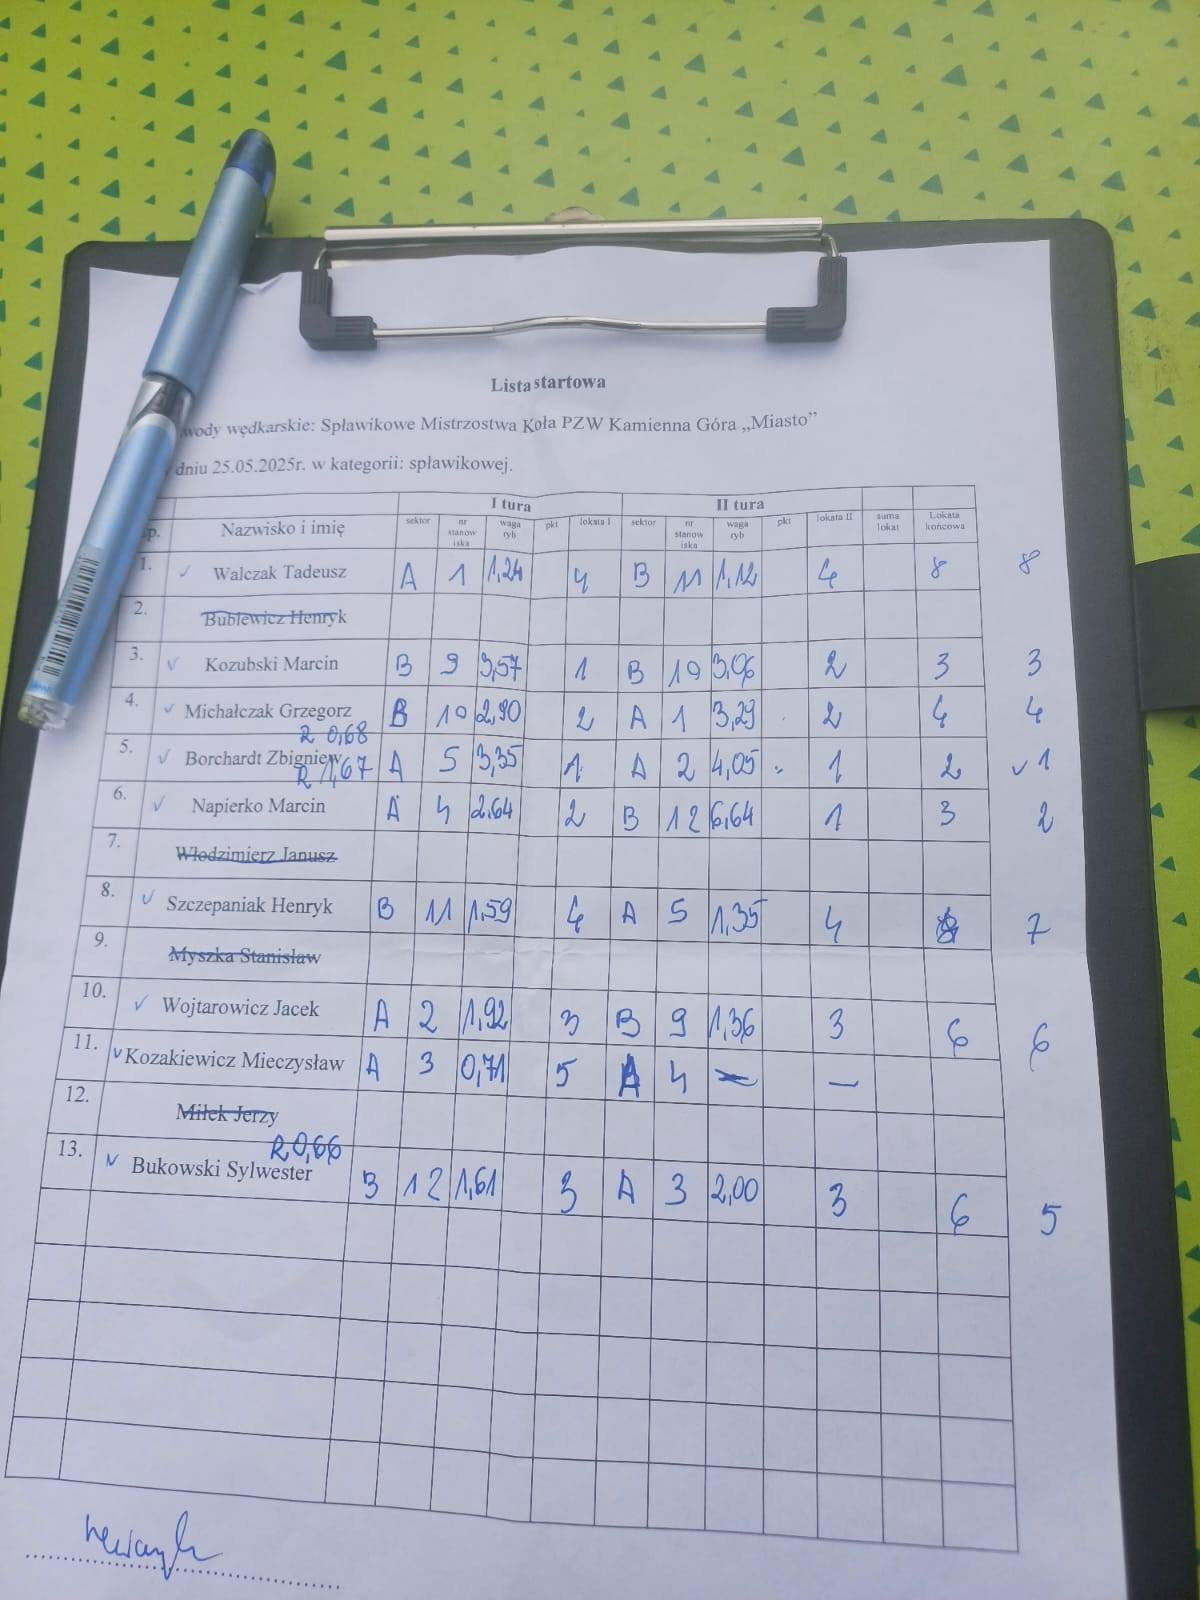 Lista startowa
wody wędkarskie: Spławikowe Mistrzostwa Koła PZW Kamienna Góra „Miasto”
dniu 25.05.2025r. w kategorii: spławikowej.
I tura II tura
p. Nazwisko i imię sektor nr stanowiska waga ryb pkt lokata I sektor nr stanowiska waga ryb pkt lokata II suma lokat Lokata końcowa
1. ✓ Walczak Tadeusz A 1 1,24 4 B 11 1,12 4 8 8
2. Bublewicz Henryk
3. ✓ Kozubski Marcin B 9 3,57 1 B 10 3,06 2 3 3
4. ✓ Michałczak Grzegorz B 10 2,90 2 A 1 3,29 2 4 4
R 0,68
5. ✓ Borchardt Zbigniew A 5 3,35 1 A 2 4,05 1 2 ✓ 1
R 1,67
6. ✓ Napierko Marcin A 4 2,64 2 B 12 6,64 1 3 2
7. Włodzimierz Janusz
8. ✓ Szczepaniak Henryk B 11 1,59 4 A 5 1,35 4 7
9. Myszka Stanisław
10. ✓ Wojtarowicz Jacek A 2 1,92 3 B 9 1,36 3 6 6
11. ✓ Kozakiewicz Mieczysław A 3 0,71 5 A 4 — —
12. Miłek Jerzy
R 0,66
13. ✓ Bukowski Sylwester B 12 1,61 3 A 3 2,00 3 6 5